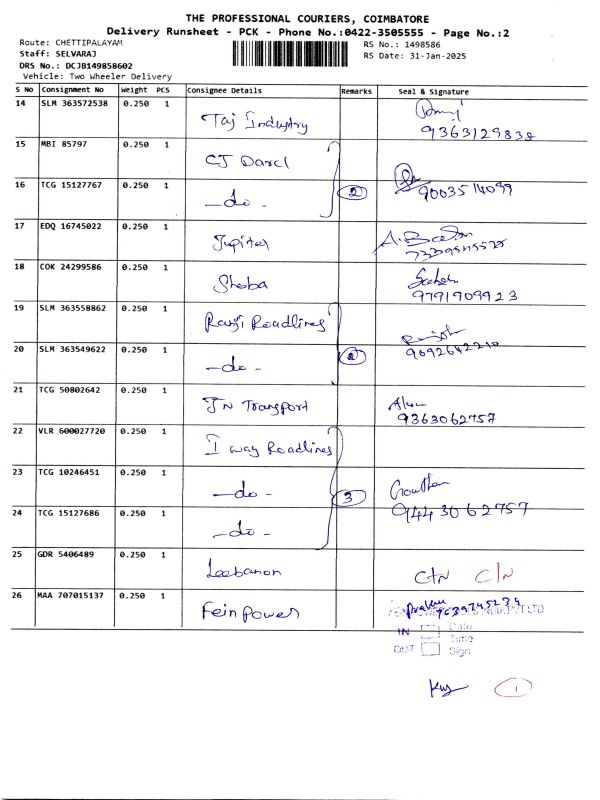 THE PROFESSIONAL COURIERS, COIMBATORE
Delivery Runsheet - PCK - Phone No.:0422-3505555 - Page No.:2
Route: CHETTIPALAYAM
Staff: SELVARAJ
DRS No.: DCJB149858602
Vehicle: Two Wheeler Delivery
RS No.: 1498586
RS Date: 31-Jan-2025
S No Consignment No Weight PCS Consignee Details Remarks Seal & Signature
14 SLM 363572538 0.250 1 Taj Industry 9363129838
15 MBI 85797 0.250 1 CJ Darcl
16 TCG 15127767 0.250 1 -do- 2 9003514099
17 EDQ 16745022 0.250 1 Jupiter
18 COK 24299586 0.250 1 Shoba 9791909923
19 SLM 363558862 0.250 1 Ranji Roadlines
20 SLM 363549622 0.250 1 -do- 2 9092642210
21 TCG 50802642 0.250 1 JN Transport 9363062757
22 VLR 600027720 0.250 1 I way Roadlines
23 TCG 10246451 0.250 1 -do- 3 Gowtham
24 TCG 15127686 0.250 1 -do- 9443062757
25 GDR 5406489 0.250 1 Leebanon C/N C/N
26 MAA 707015137 0.250 1 Fein Power 9639745234
PVT LTD
IN Date
Time
OUT Sign
1